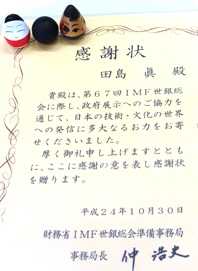 感謝状
田島 眞 殿
貴殿は、第67回IMF世銀総
会に際し、政府展示へのご協力を
通じて、日本の技術・文化の世界
への発信に多大なるお力をお寄
せくださいました。
厚く御礼申し上げますととも
に、ここに感謝の意を表し感謝状
を贈ります。
平成24年10月30日
財務省IMF世銀総会準備事務局
事務局長 仲 浩史